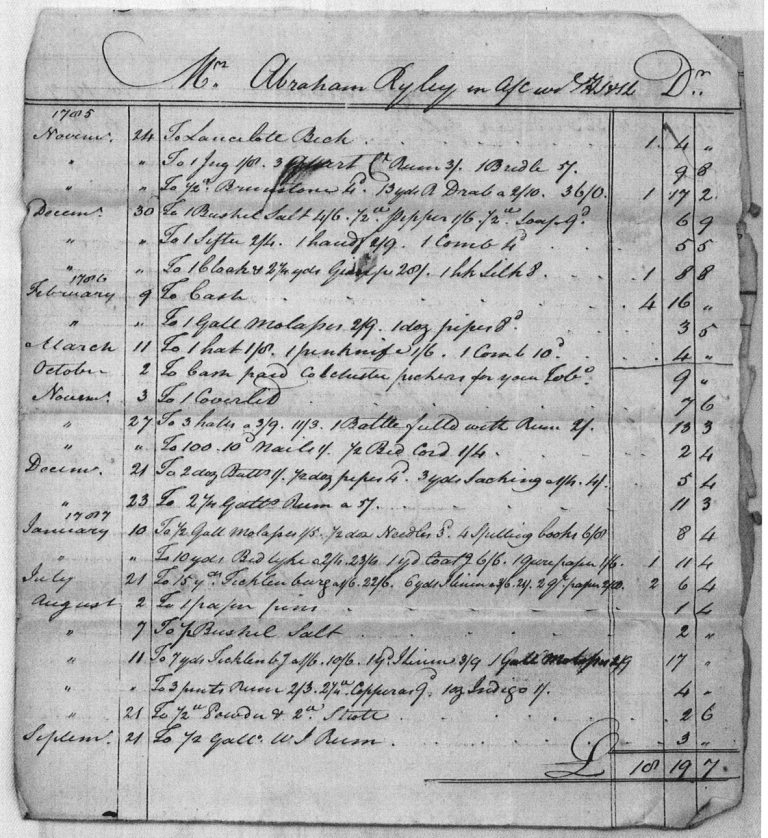 Mr. Abraham Ryley in A/c wt Dr.
1785
Novemr. 24 To Lancelott Beck 1 4 "
" " To 1 Jug 1/8. 3 Rum 3/. 1 Bridle 5/. 9 8
" " To 1/2 a Brimstone 4d. 13 yds B Drab a 2/10. 36/10. 1 17 2
Decemr. 30 To 1 Bushel Salt 4/6. 1/2 a Pepper 1/6. 1/2 a Soap 9d. 6 9
" " To 1 Sifter 2/4. 1 handf 2/9. 1 Comb 4d. 5 5
" " To 1 Cloak & 2 1/4 yds 28/. 1 hk Silk 8. 1 8 8
1786
February 9 To Cash 4 16 "
" " To 1 Gall Molasses 2/9. 1 doz pipes 8d. 3 5
March 11 To 1 hat 1/8. 1 penknife 1/6. 1 Comb 10d. 4 "
October 2 To Cash paid Colchester pickers for your Tobo. 9 "
Novemr. 3 To 1 Coverled 7 6
" 27 To 3 hatts a 3/9. 11/3. 1 Bottle filled with Rum 2/. 13 3
" " To 100. 10d Nails 1/. 1/2 Bed Cord 1/4. 2 4
Decemr. 21 To 2 doz Butts 1/. 1/2 doz pipes 4d. 3 yds Sacking a 1/4. 4/. 5 4
" 23 To 2 1/4 Galls Rum a 5/. 11 3
1787
January 10 To 1/2 Gall Molasses 1/5. 1/2 doz Needles 3d. 4 Spelling books 6/8 8 4
" " To 10 yds Bed tyke a 2/4. 23/4. 1 yd Coatg 6/6. 1 qure paper 1/6. 1 11 4
July 21 To 15 yds Ticklenburg a 1/6. 22/6. 6 yds a 3/6. 21/. 2 qr. paper 2/10. 2 6 4
August 2 To 1 paper pins 1 4
" 7 To 1/2 Bushel Salt 2 "
" 11 To 7 yds Ticklenbg a 1/6. 10/6. 1 yd. 3/9 1 Gall Molasses 2/9 17 "
" " To 3 pints Rum 2/3. 2 1/4 a Copperas 9d. 1 oz Indigo 1/. 4 "
" 21 To 1/2 a Powder & 2 a Shott 2 6
Septemr. 21 To 1/2 Gall. W I Rum 3 "
£ 18 19 7